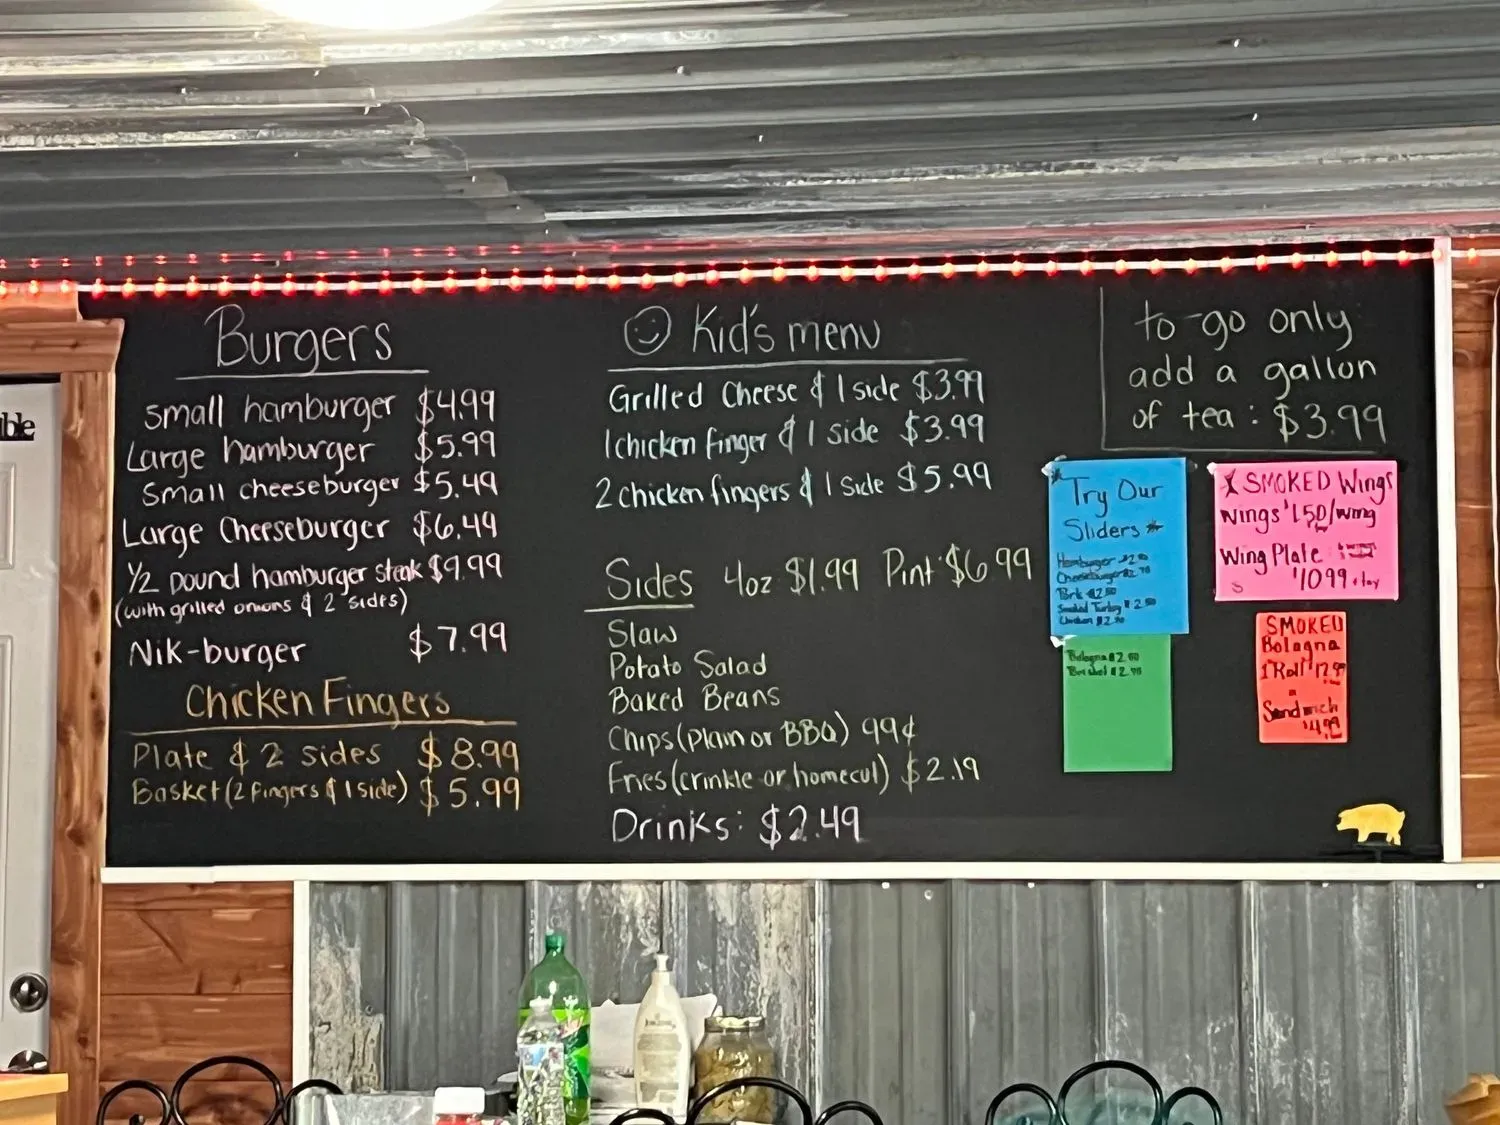 ble
Burgers
small hamburger $4.99
Large hamburger $5.99
Small cheeseburger $5.49
Large Cheeseburger $6.49
1/2 pound hamburger steak $9.99
(with grilled onions & 2 sides)
Nik-burger $7.99
Chicken Fingers
Plate & 2 sides $8.99
Basket (2 fingers & 1 side) $5.99
Kid's menu
Grilled Cheese & 1 side $3.99
1 chicken finger & 1 side $3.99
2 chicken fingers & 1 side $5.99
Sides 4oz $1.99 Pint $6.99
Slaw
Potato Salad
Baked Beans
Chips (plain or BBQ) 99¢
Fries (crinkle or homecut) $2.19
Drinks: $2.49
to-go only
add a gallon
of tea: $3.99
Try Our
Sliders
Hamburger
Cheeseburger
Pork $2.50
Smoked Turkey $2.50
Chicken
Bologna
Brisket
SMOKED Wings
Wings $1.50/wing
Wing Plate
$10.99
SMOKED
Bologna
1 Roll
Sandwich
$4.99